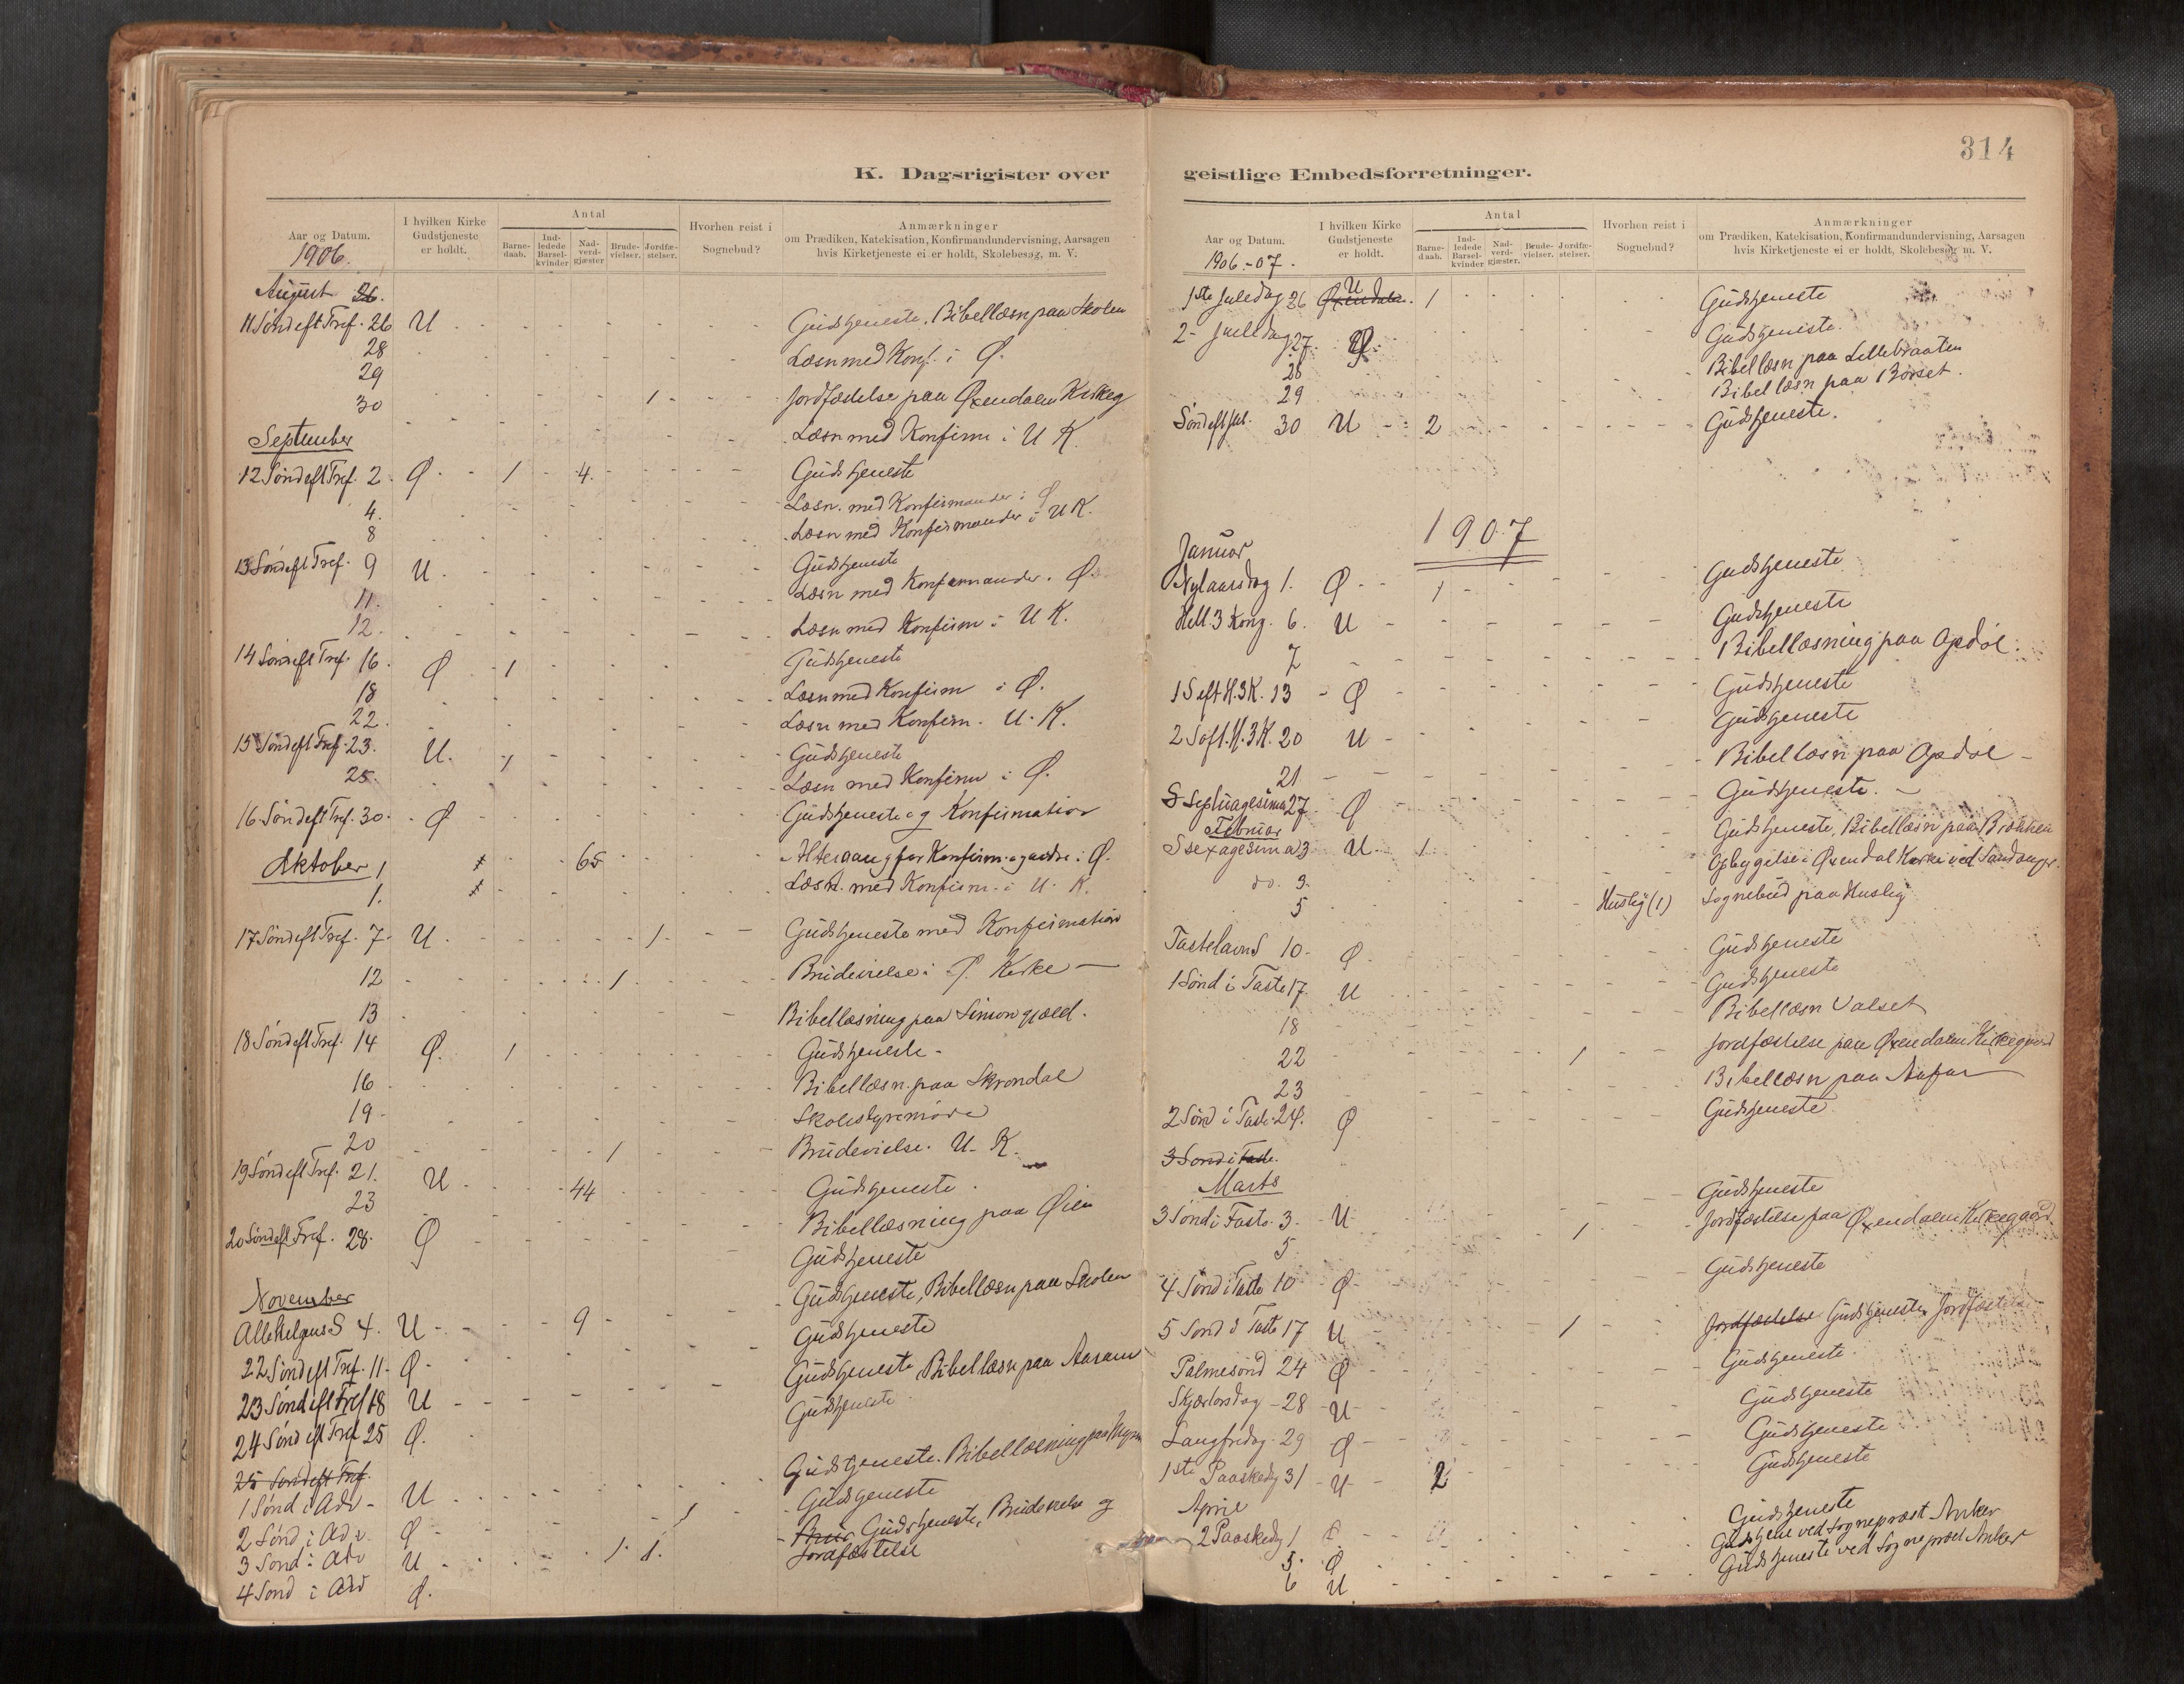 K. Dagsrigister over
Aar og Datum. I hvilken Kirke Gudstjeneste er holdt. Antal Barnedaab. Indledede Barselkvinder Nadverdgjæster Brudevielser. Jordfæstelser. Hvorhen reist i Sognebud? Anmærkninger om Prædiken, Katekisation, Konfirmandundervisning, Aarsagen hvis Kirketjeneste ei er holdt, Skolebesøg, m. V.
1906.
August 26.
11 Sønd eft Tref. 26 U Gudstjeneste. Bibellæsn paa Skolen
28 Læsn med Konf. i Ø.
29 1 Jordfæstelse paa Øxendalen Kirkeg
30 Læsn med Konfirm i U K.
September
12 Sønd eft Tref. 2 Ø 1 4. Gudstjeneste
4. Læsn. med Konfirmander i Ø
8 Læsn med Konfirmander i U K.
13 Sønd eft Tref. 9 U Gudstjeneste
11. Læsn med Konfirmander. Ø.
12. Læsn med Konfirm i U K.
14 Sønd eft Tref. 16 Ø 1 Gudstjeneste
18 Læsn med Konfirm i Ø.
22. Læsn med Konfirm. U. K.
15 Sønd eft Tref. 23. U. 1 Gudstjeneste
25. Læsn med Konfirm i Ø.
16 Sønd eft Tref. 30. Ø Gudstjeneste og Konfirmation
Oktober 1 65 Altergang for Konfirm. og andre i Ø.
1. Læsn. med Konfirm. i U. K.
17 Sønd eft Tref. 7 U. 1. Gudstjeneste med Konfirmation
12 1. Brudevielse i Ø. Kirke
13 Bibellæsning paa Simongjæld.
18 Sønd eft Tref. 14 Ø. 1 Gudstjeneste
16 Bibellæsn. paa Skrondal
19 Skolestyremøde
20 1 Brudevielse. U. K.
19 Sønd eft Tref. 21. U 44 Gudstjeneste
23 Bibellæsning paa Øien
20 Sønd eft Tref. 28. Ø Gudstjeneste
November Gudstjeneste, Bibellæsn paa Skolen
Allehelgens S 4. U 9 Gudstjeneste
22 Sønd eft Tref. 11 Ø Gudstjeneste Bibellæsn paa
23 Sønd eft Tref 18 U Gudstjeneste
24 Sønd eft Tref 25 Ø. Gudstjeneste. Bibellæsning paa
25 Sønd eft Tref.
1 Sønd i Adv U Gudstjeneste
2 Sønd i Adv. Ø 1 Gudstjeneste, Brudevielse og
3 Sønd i Adv U 1. 1. Jordfæstelse
4 Sønd i Adv Ø.
314
geistlige Embedsforretninger.
Aar og Datum. I hvilken Kirke Gudstjeneste er holdt. Antal Barnedaab. Indledede Barselkvinder Nadverdgjæster. Brudevielser. Jordfæstelser. Hvorhen reist i Sognebud? Anmærkninger om Prædiken, Katekisation, Konfirmandundervisning, Aarsagen hvis Kirketjeneste ei er holdt, Skolebesøg m. V.
1906.-07.
1ste Juledag 26 Øxendalen U 1 Gudstjeneste
2- Juledag 27. Ø Gudstjeneste.
28 Bibellæsn paa Lillebraaten
29 Bibellæsn paa Børset.
Sønd eft Jul. 30 U 2 Gudstjeneste.
1907
Januar
Nytaarsdag 1. Ø 1 Gudstjeneste
Hell. 3 Kong. 6. U Gudstjeneste
7 Bibellæsning paa Opdøl.
1 S eft H. 3 K. 13 Ø Gudstjeneste
2 S eft. H. 3 K. 20 U Gudstjeneste
21 Bibellæsn paa Opdøl
S Septuagesima 27 Ø Gudstjeneste.
Februar Gudstjeneste, Bibellæsn paa Brækken
S sexagesima 3 U. 1. Opbyggelse i Øxendal Kirke ved
do. 3.
5 Husby (1) Sognebud paa Husby
Fastelavns S 10 Ø Gudstjeneste
1 Sønd i Faste 17. U Gudstjeneste
18 Bibellæsn Valset
22 1 Jordfæstelse paa Øxendalen Kirkegaard
23 Bibellæsn paa
2 Sønd i Faste 24. Ø Gudstjeneste
3 Sønd i Faste.
Marts
3 Sønd i Faste. 3. U Gudstjeneste
5 1 Jordfæstelse paa Øxendalen Kirkegaard.
4 Sønd i Faste 10 Ø Gudstjeneste
5 Sønd i Faste 17 U 1 Jordfæstelse Gudstjeneste, Jordfæstelse
Palmesønd 24 Ø Gudstjeneste
Skjærtorsdag 28 U Gudstjeneste
Langfredag 29 Ø Gudstjeneste
1ste Paaskedg 31 U 2 Gudstjeneste
April
2 Paaskedg 1 Ø Gudstjeneste
5. Ø Gudstjene ved Sogneprest Anker
6 U Gudstjeneste ved Sogneprest Anker